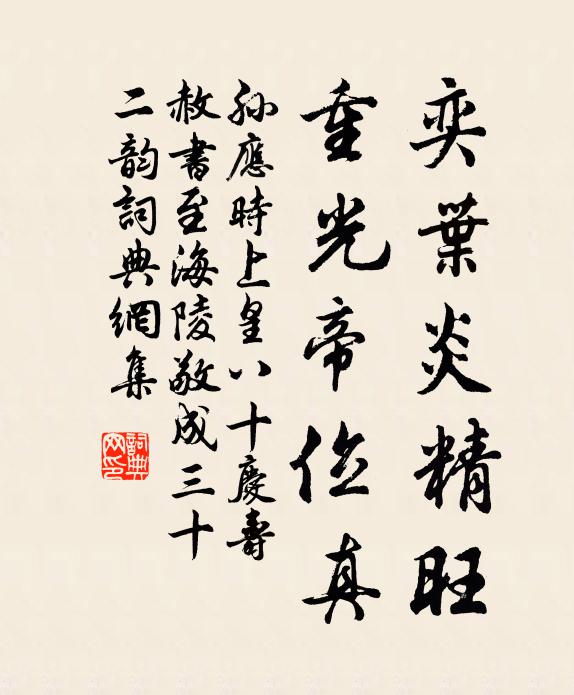 奕葉炎精旺
重光帝位真
孫應時上皇八十慶壽
赦書至海陵敬成三十
二韵詞典網集
詞典网印